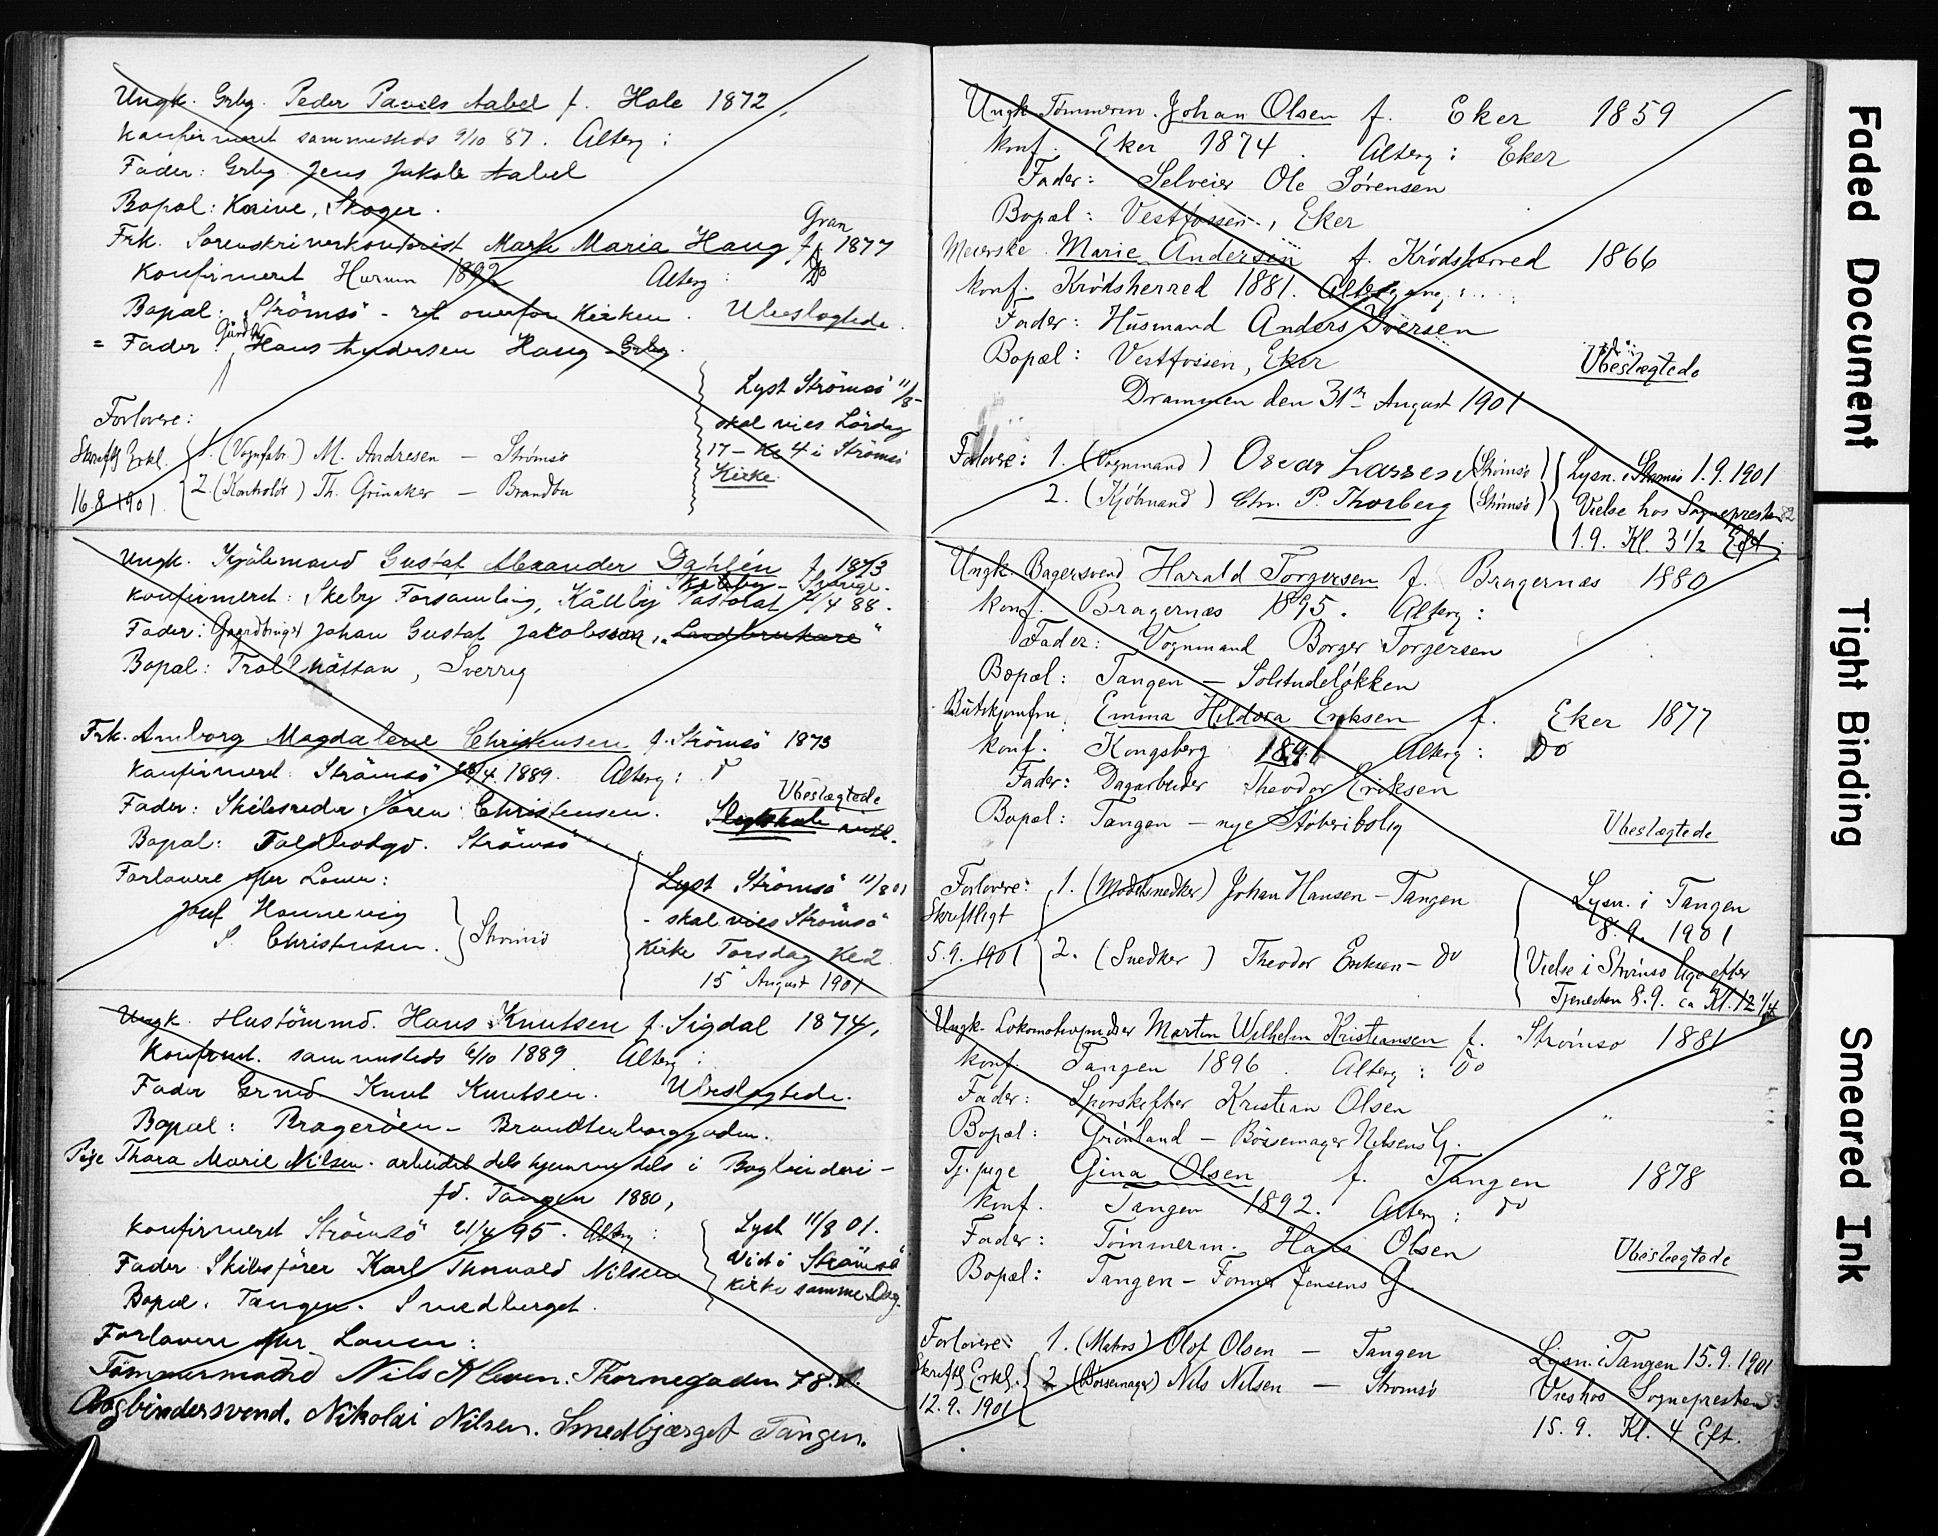 Ungk. Grbg. Peder Pavels Aabel f. Hole 1872.
Konfirmeret sammesteds 9/10 87. Alterg:
Fader: Grbg. Jens Jakob Aabel
Bopæl: Koive, Skoger.
Gran
Frk. Sorenskriverkontorist Marte Maria Haug f. 1877
Konfirmeret Hurum 1892 Alterg: Do
Bopæl: Strömsö - ret overfor Kirken. Ubeslægtede.
= Fader: Gårdbr Hans Andersen Haug - Grbg.
Lyst Strömsö 11/8 -
skal vies Lördag
17 - Kl 4 i Strömsö
Kirke.
Forlovere:
Skriftlg Erkl. 1. (Vognfabr.) M. Andresen - Strömsö
16.8.1901. 2. (Kontrolör) Th. Grinaker - Brandbu
Ungk. Kjölemand Gustaf Alexander Dahlén f. 1873
Källby - Sverige.
Konfirmeret: Skeby Forsamling, Källby Pastorat 21/4 88.
Fader: Gaardbruger Johan Gustaf Jakobsson, "Landbrukare"
Bopæl: Trollhättan, Sverrig
Frk. Annborg Magdalene Christensen f. Strömsö 1873
Konfirmeret: Strömsö 28/4 1889. Alterg:
Ubeslægtede
Fader: Skibsreder Sören Christensen. Slegtskab
Bopæl: Toldbodgd. Strömsö
Forlovere efter Loven:
Josef Hannevig
S. Christensen. Strömsö
Lyst Strömsö 11/8 01
- skal vies Strömsö
Kirke Torsdag Kl 2
15 August 1901
Ungk. Hustömmd. Hans Knutsen f. Sigdal 1874,
Konfirmt. sammesteds 6/10 1889. Alterg:
Fader Grmd Knut Knutsen. Ubeslægtede.
Bopæl: Brageröen - Brandtenborggaden.
Pige Thora Marie Nilsen. arbeidet dels hjemme dels i Bogbinderi -
fd. Tangen 1880,
Konfirmeret Strömsö 21/4 95. Alterg:
Fader Skibsförer Karl Thorvald Nilsen
Bopæl. Tangen. Smedberget.
Lyst 11/8 01.
Viet i Strömsö
Kirke samme Dag.
Forlovere efter Loven:
Tömmermand Nils Aleven. Thornegaden 78.
Bogbindersvend. Nikolai Nilsen. Smedbjærget Tangen.
Ungk. Tømmerm. Johan Olsen f. Eker 1859
Konf. Eker 1874. Alterg: Eker
Fader: Selveier Ole Sørensen
Bopæl: Vestfossen, Eker
Meierske Marie Andersen f. Krødsherred 1866
Konf. Krødsherred 1881. Altergang:
Fader: Husmand Anders Iversen
Bopæl: Vestfossen, Eker Ubeslægtede
Drammen den 31te August 1901
Forlovere: 1. (Vognmand) Oscar Larsen (Strømsø)
2. (Kjøbmand) Chr. P. Thorberg (Strømsø)
Lysn. i Strømsø 1.9.1901
Vielse hos Sognepresten
1.9. Kl. 3 1/2 Eft.
Ungk. Bagersvend Harald Torgersen f. Bragernæs 1880
Konf. Bragernæs 1895. Alterg:
Fader: Vognmand Borger Torgersen
Bopæl: Tangen - Solitudeløkken
Butikjomfru Emma Heldora Eriksen f. Eker 1877
Konf. Kongsberg 1891 Alterg: Do
Fader: Dagarbeider Theodor Eriksen
Bopæl: Tangen - nye Støberibolig Ubeslægtede
Forlovere: 1. (Modelsnedker) Johan Hansen - Tangen
Skriftligt
5.9.1901 2. (Snedker) Theodor Eriksen - do
Lysn. i Tangen
8.9. 1901
Vielse i Strømsø lige efter
Tjenesten 8.9. ca Kl. 12 1/4
Ungk. Lokomotivpudser Martin Wilhelm Kristiansen f. Strømsø 1881
Konf. Tangen 1896. Alterg: Do
Fader: Sporskifter Kristian Olsen
Bopæl: Grønland - Børsemager Nilsens G.
Tj.pige Gina Olsen f. Tangen 1878
Konf. Tangen 1892. Alterg: do
Fader: Tømmerm. Hans Olsen Ubeslægtede
Bopæl: Tangen - Former Jensens G.
Forlovere: 1. (Matros) Olof Olsen - Tangen
Skriftlg Erkl. 2 (Børsemager) Nils Nilsen - Strømsø
12.9.1901
Lysn. i Tangen 15.9.1901
Vies hos Sognepresten
15.9. Kl. 4 Eft.
Faded Document
Tight Binding
Smeared Ink